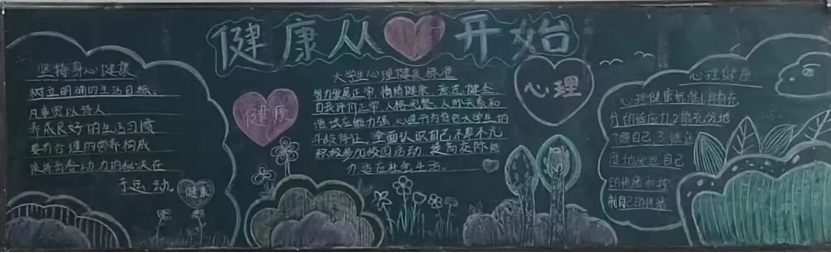 健康从心开始
坚持身心健康
树立明确的生活目标。
凡事宽以待人
养成良好的生活习惯
要有合理的营养构成
保持青春动力的秘决在
于运动。
健康
健康
大学生心理健康标准
智力发展正常,情绪健康,意志健全
自我评价正常,人格完整,人际关系和
谐,适应能力强,心理行为符合大学生的
年龄特征,全面认识自己,不卑不亢
积极参加校园活动,提高交际能
力,适应社会生活。
心理
心理健康
心理健康的标准
分的适应力,能充分地
了解自己
度地
自己
的情绪和控
制自己的情绪